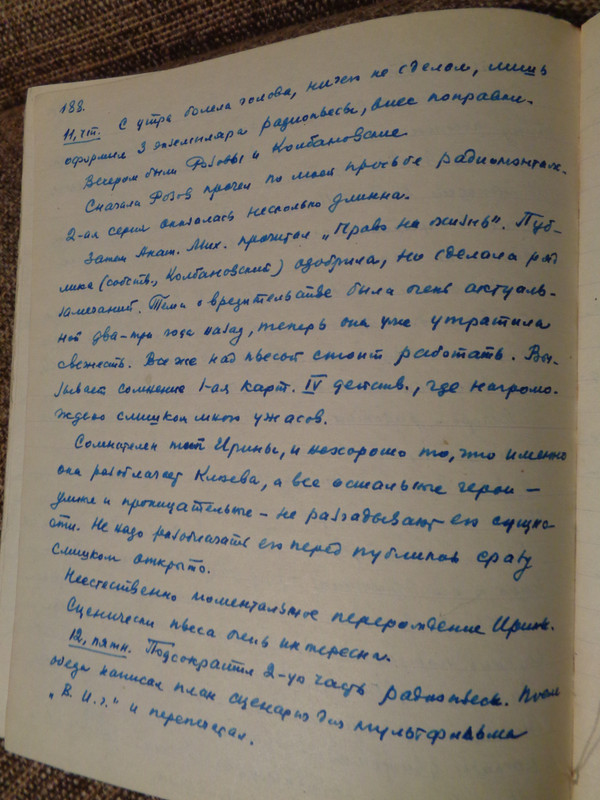 188.
11, чт. С утра болела голова, ничего не сделал, лишь
оформил 3 экземпляра радиопьесы, внес поправки.
Вечером были Розовы и Колбановские.
Сначала Розов прочел по моей просьбе радиомонтаж.
2-ая серия оказалась несколько длинна.
Затем Анат. Мих. прочитал „Право на жизнь". Пуб-
лика (собств, Колбановский) одобрила, но сделала ряд
замечаний. Тема о вредительстве была очень актуаль-
ной два-три года назад, теперь она уже утратила
свежесть. Все же над пьесой стоит работать. Вы-
зывает сомнение 1-ая карт. IV действ., где нагромо-
ждено слишком много ужасов.
Сомнителен тип Ирины, и нехорошо то, что именно
она разоблачает Клюева, а все остальные герои -
умные и проницательные - не разгадывают его сущно-
сти. Не надо разоблачать его перед публикой сразу
слишком открыто.
Неестественно моментальное перерождение Ирины.
Сценически пьеса очень интересна.
12, пятн. Подсократил 2-ую часть радиопьесы. После
обеда написал план сценария для мультфильма
„В. И. г." и перепечатал.